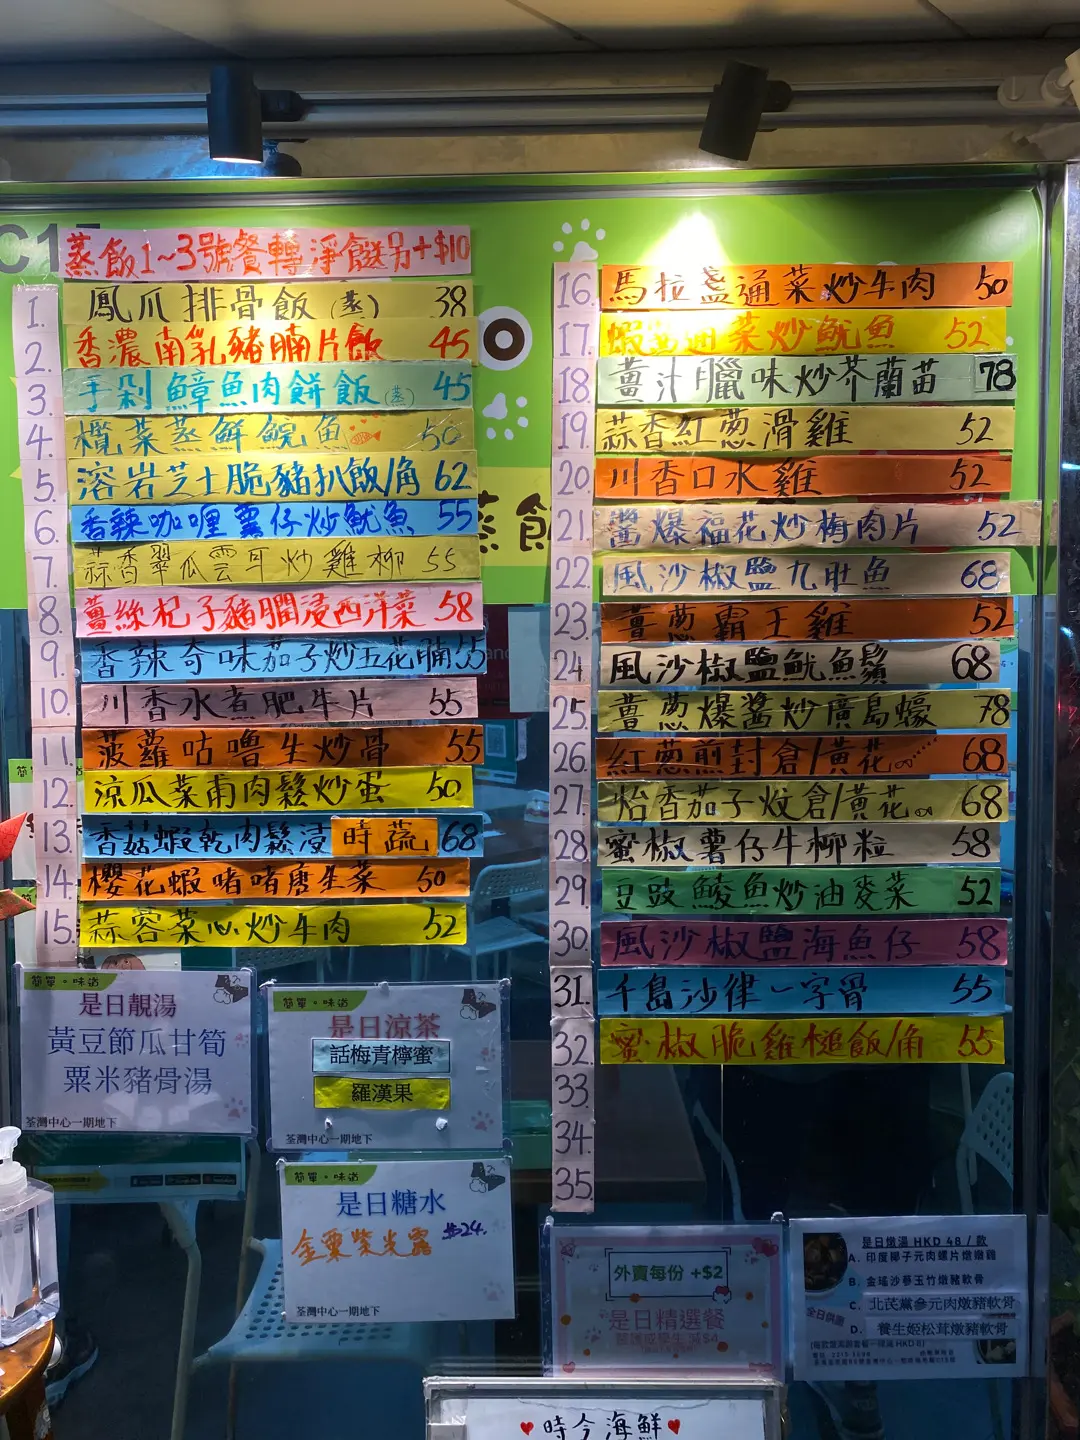 C1
蒸飯1~3號餐轉淨餸另+$10
1. 鳳爪排骨飯(蒸) 38
2. 香濃南乳豬腩片飯 45
3. 手剁鱆魚肉餅飯(蒸) 45
4. 欖菜蒸鮮鯇魚 50
5. 溶岩芝士脆豬扒飯/角 62
6. 香辣咖喱薯仔炒魷魚 55
7. 蒜香翠瓜雲耳炒雞柳 55
8. 薑絲杞子豬膶浸西洋菜 58
9. 香辣奇味茄子炒五花腩 55
10. 川香水煮肥牛片 55
11. 菠蘿咕嚕生炒骨 55
12. 涼瓜菜甫肉鬆炒蛋 50
13. 香菇蝦乾肉鬆浸時蔬 68
14. 櫻花蝦啫啫唐生菜 50
15. 蒜蓉菜心炒牛肉 52
蒸飯
16. 馬拉盞通菜炒牛肉 50
17. 蝦醬通菜炒魷魚 52
18. 薑汁臘味炒芥蘭苗 78
19. 蒜香紅葱滑雞 52
20. 川香口水雞 52
21. 醬爆福花炒梅肉片 52
22. 風沙椒鹽九肚魚 68
23. 薑葱霸王雞 52
24. 風沙椒鹽魷魚鬚 68
25. 薑葱爆醬炒廣島蠔 78
26. 紅葱煎封倉/黃花 68
27. 怡香茄子炆倉/黃花 68
28. 蜜椒薯仔牛柳粒 58
29. 豆豉鯪魚炒油麥菜 52
30. 風沙椒鹽海魚仔 58
31. 千島沙律一字骨 55
32. 蜜椒脆雞槌飯/角 55
33.
34.
35.
簡單。味道
是日靚湯
黃豆節瓜甘筍
粟米豬骨湯
荃灣中心一期地下
簡單。味道
是日涼茶
話梅青檸蜜
羅漢果
荃灣中心一期地下
簡單。味道
是日糖水
金粟紫米露 $24.
荃灣中心一期地下
外賣每份 +$2
是日精選餐
是日燉湯 HKD 48 / 款
A. 印度椰子元肉螺片燉雞
B. 金瑤沙蔘玉竹燉豬軟骨
C. 北芪黨參元肉燉豬軟骨
D. 養生姬松茸燉豬軟骨
全日供應
時令海鮮